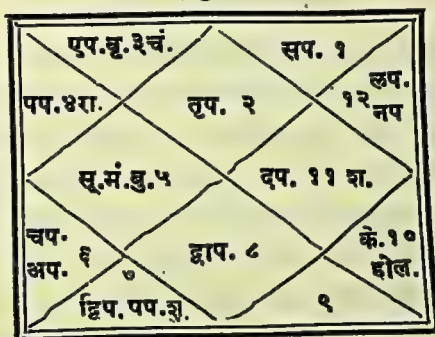 एप.बृ.३चं.
सप. १
पप.४रा.
तृप. २
१२ लप.
नप
सू.मं.बु.५
दप. ११ श.
चप.
अप. ६
७
द्वाप. ८
के.१०
होल.
द्विप.पप.शु.
९